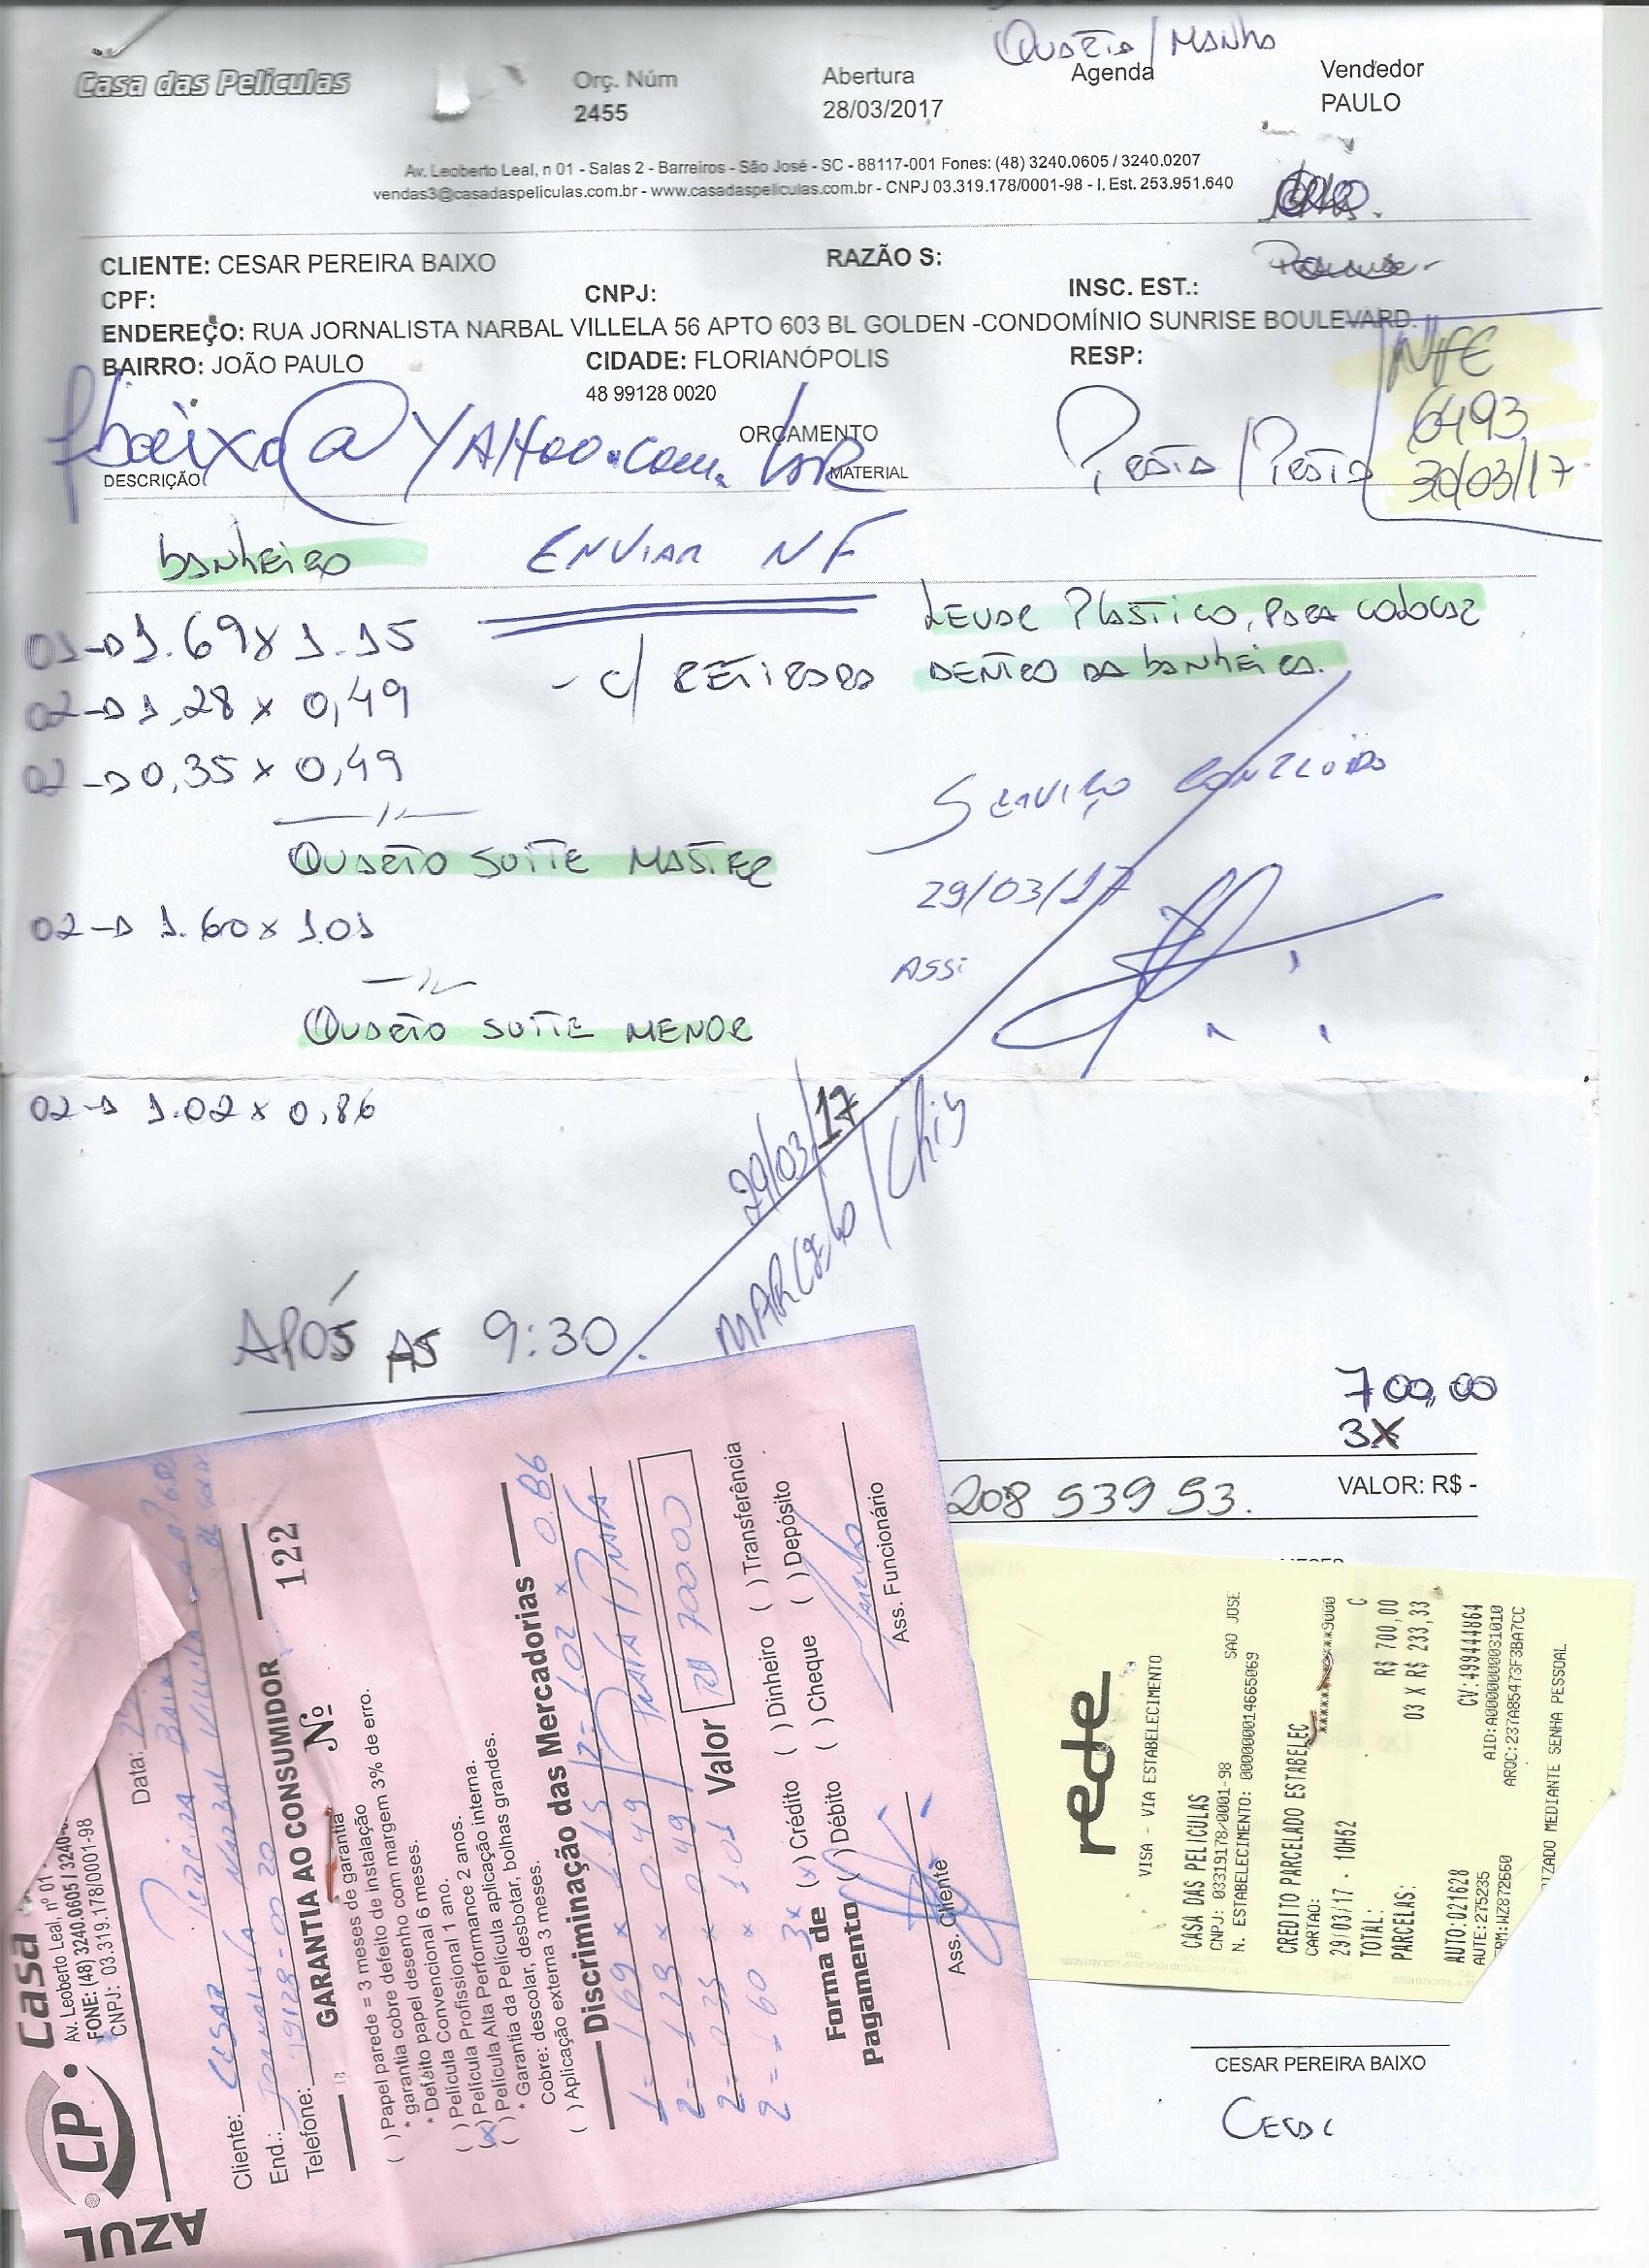 Quarta / Manhã
Casa das Películas
Orç. Núm
Abertura
Agenda
Vendedor
2455
28/03/2017
PAULO
Av. Leoberto Leal, n 01 - Salas 2 - Barreiros - São José - SC - 88117-001 Fones: (48) 3240.0605 / 3240.0207
vendas3@casadaspeliculas.com.br - www.casadaspeliculas.com.br - CNPJ 03.319.178/0001-98 - I. Est. 253.951.640
CLIENTE: CESAR PEREIRA BAIXO
RAZÃO S:
CPF:
CNPJ:
INSC. EST.:
ENDEREÇO: RUA JORNALISTA NARBAL VILLELA 56 APTO 603 BL GOLDEN -CONDOMÍNIO SUNRISE BOULEVARD.
BAIRRO: JOÃO PAULO
CIDADE: FLORIANÓPOLIS
RESP:
48 99128 0020
NFE
6493
30/03/17
fbaixo@YAHOO.com.br
ORÇAMENTO
DESCRIÇÃO
MATERIAL
Prata / Prata
banheiro
ENVIAR NF
Levar Plastico, para colocar
dentro da banheira.
01 → 1.69 x 1.15
- c/ retirada
02 → 1,28 x 0,49
02 → 0,35 x 0,49
Serviço concluído
Quarto Suite Master
29/03/17
02 → 1.60 x 1.01
ASS:
Quarto Suite Menor
02 → 1.02 x 0,86
29/03/17
MARCELO / Chis
APÓS AS 9:30.
700,00
3X
208 539 53.
VALOR: R$ -
AZUL
CP
Casa
Av. Leoberto Leal, nº 01
FONE: (48) 3240.0605 / 3240-0
CNPJ: 03.319.178/0001-98
Data:
Cliente: CESAR Pereira Baixo
End.: Jornalista Narbal Villela
Telefone: 99128-0020
GARANTIA AO CONSUMIDOR
Nº 122
( ) Papel parede = 3 meses de garantia
* garantia cobre defeito de instalação
* Defeito papel desenho com margem 3% de erro.
( ) Película Convencional 6 meses.
( ) Película Profissional 1 ano.
(x) Película Alta Performance 2 anos.
( ) Garantia da Película aplicação interna.
Cobre: descolar, desbotar, bolhas grandes.
( ) Aplicação externa 3 meses.
Discriminação das Mercadorias
1 - 1.69 x 1.15 / 2 - 1.02 x 0.86
2 - 1.28 x 0.49 / Prata / Prata
2 - 0.35 x 0.49 / Prata / Prata
2 - 1.60 x 1.01
Valor 700.00
Forma de Pagamento
3x (x) Crédito ( ) Dinheiro ( ) Transferência
( ) Débito ( ) Cheque ( ) Depósito
Ass. Cliente
Ass. Funcionário
rede
VISA - VIA ESTABELECIMENTO
CASA DAS PELICULAS
CNPJ: 03319178/0001-98
SAO JOSE
N. ESTABELECIMENTO: 000000014665069
CREDITO PARCELADO ESTABELEC
CARTAO:
29/03/17 - 10H52
C
TOTAL: R$ 700,00
PARCELAS: 03 X R$ 233,33
AUTO:021628
CV:49944864
AUTE:275235
AID:A0000000031010
ARQC:237A85473F3BA7CC
IZADO MEDIANTE SENHA PESSOAL
CESAR PEREIRA BAIXO
Cesar